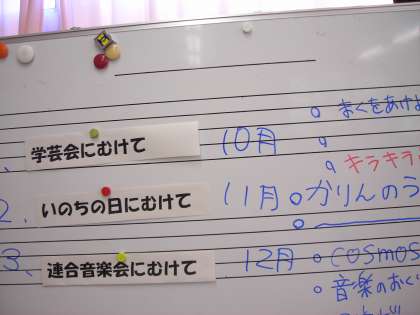 まくをあけよ
、学芸会にむけて 10月
キラキラ
2. いのちの日にむけて 11月 かりんのう
3、連合音楽会にむけて 12月 COSMOS
音楽のおく